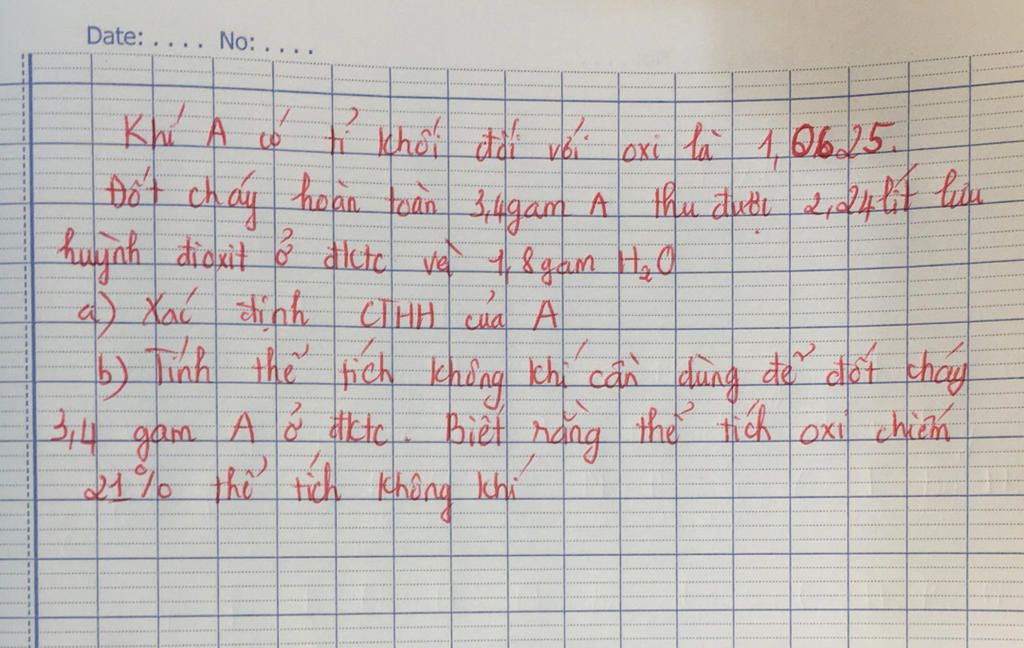 Date: .... No: ....
Khí A có tỉ khối đối với oxi là 1,0625.
Đốt cháy hoàn toàn 3,4gam A thu được 2,24lít lưu
huỳnh đioxit ở đktc và 1,8gam H₂O
a) Xác định CTHH của A
b) Tính thể tích không khí cần dùng để đốt cháy
3,4 gam A ở đktc. Biết rằng thể tích oxi chiếm
21% thể tích không khí